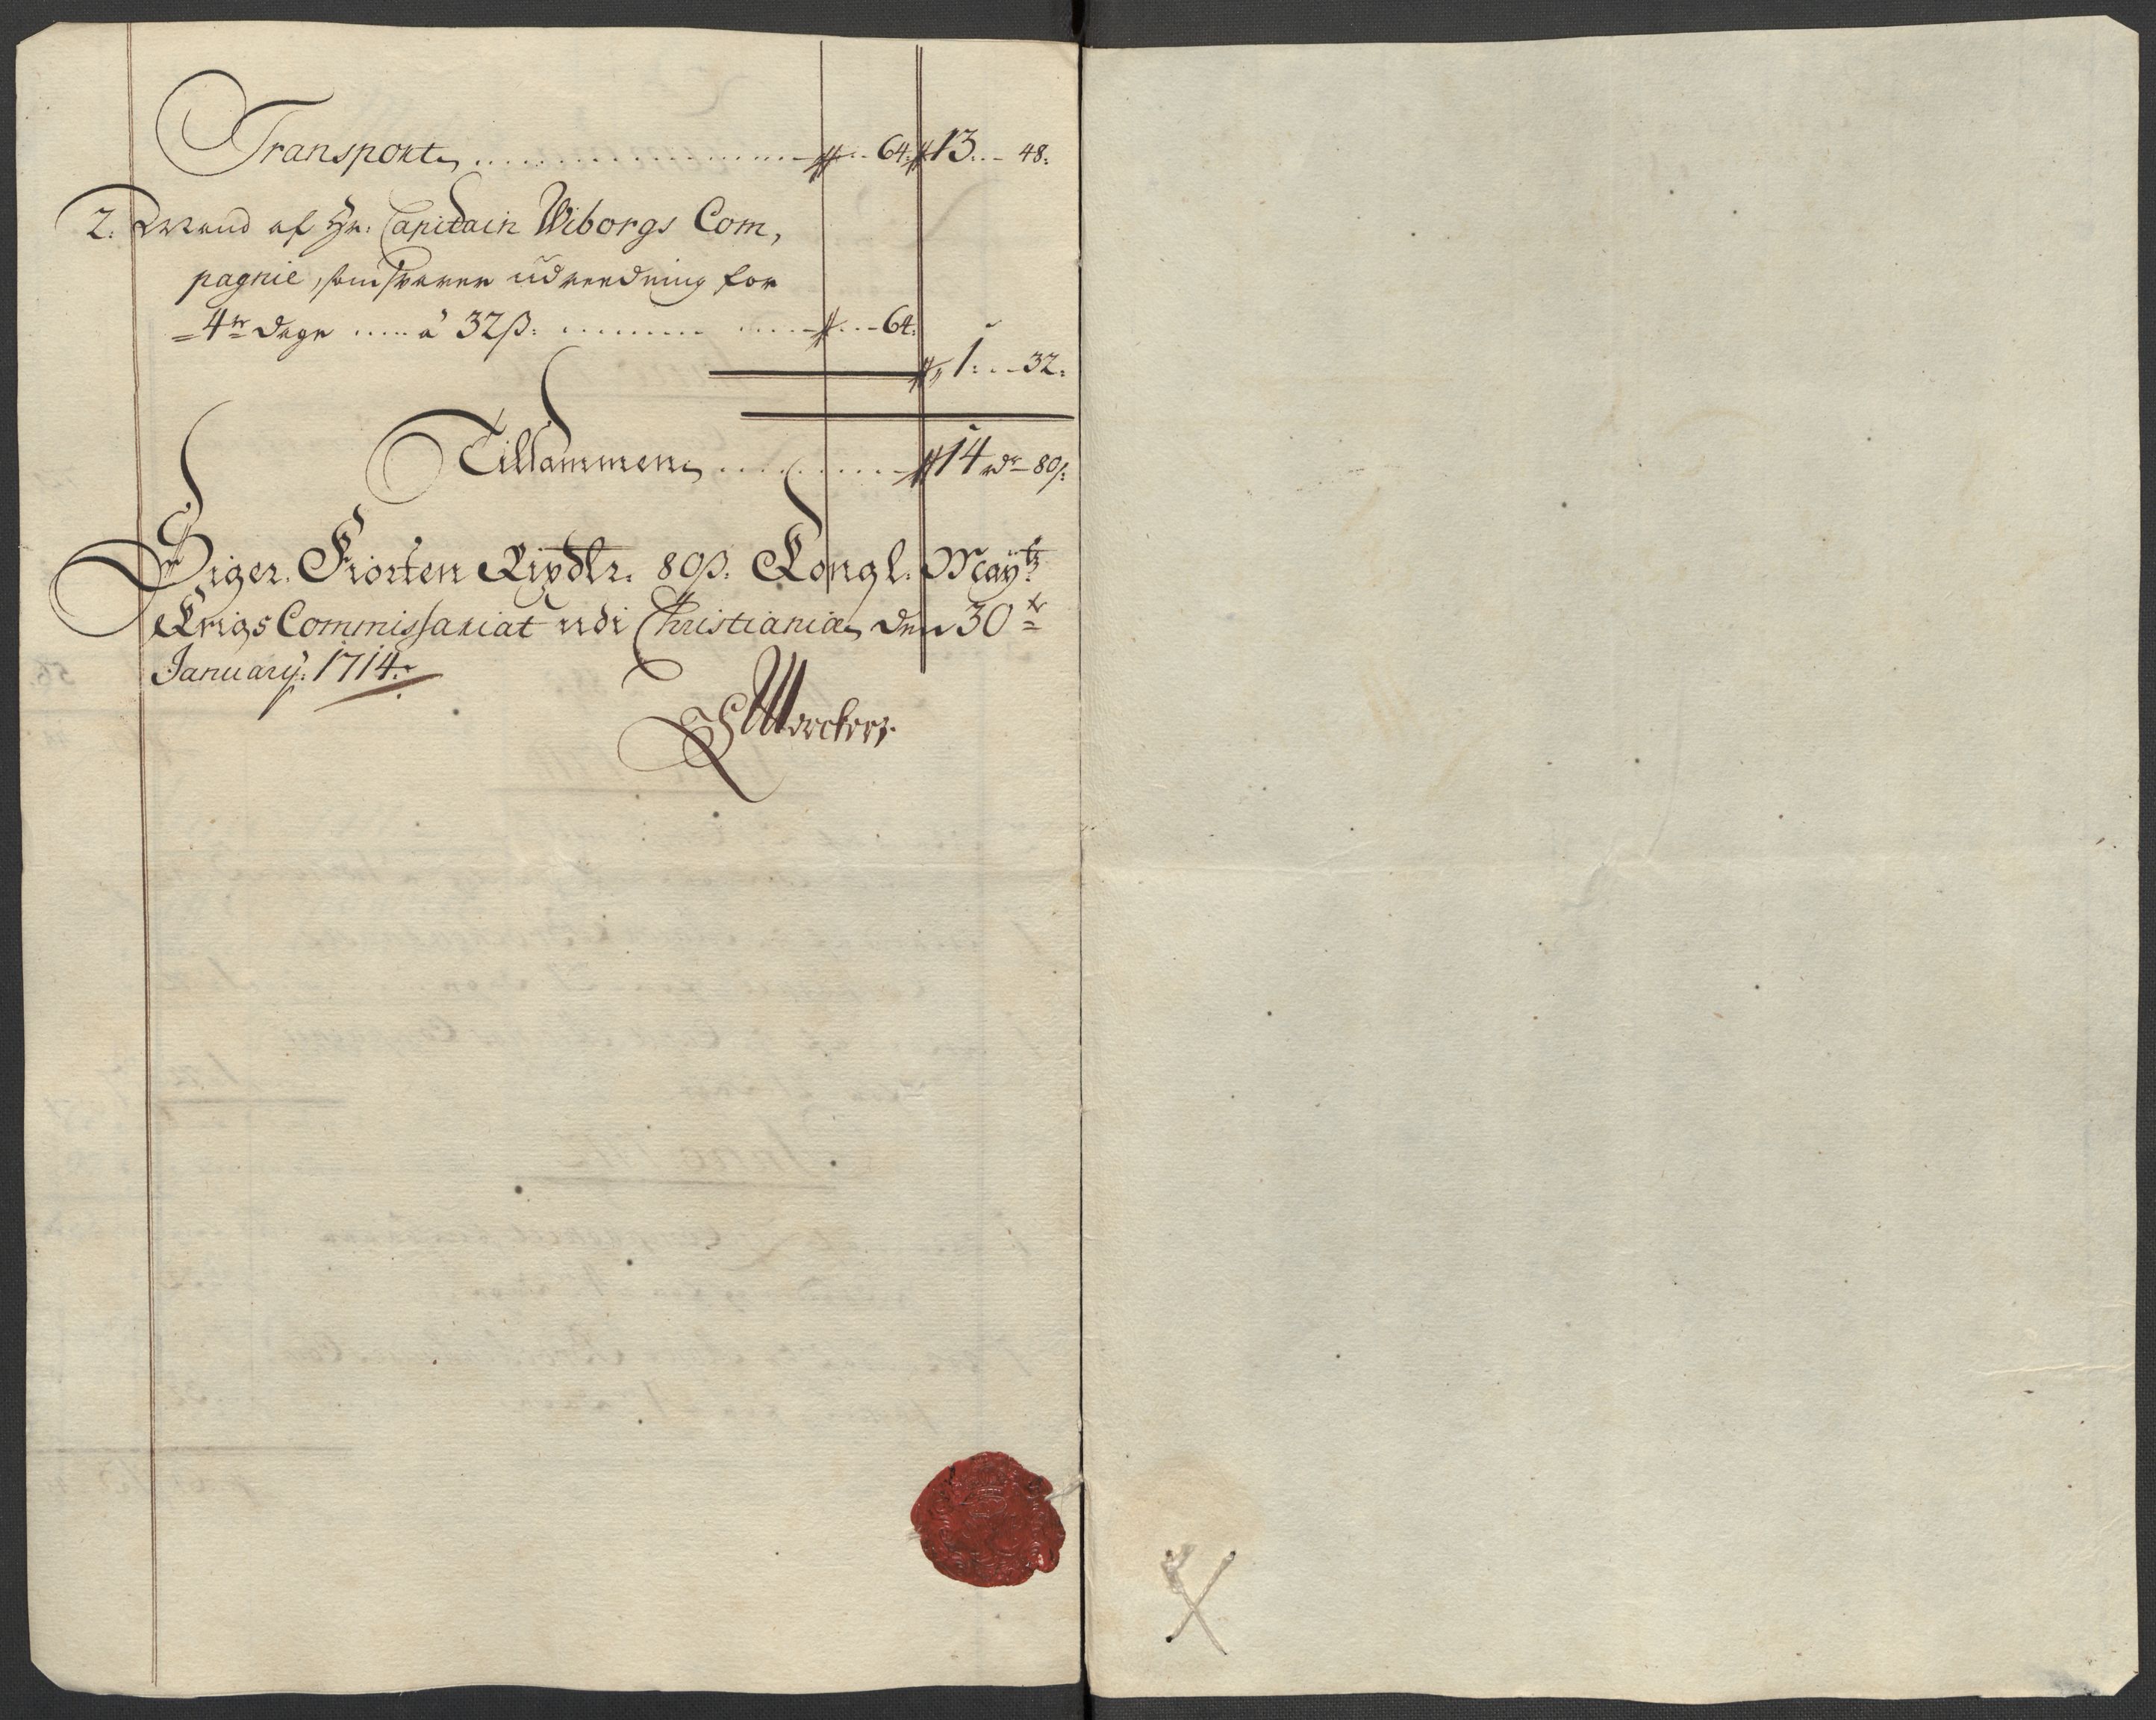 Transport ........ # .. 64: # 13 .. 48:
2. Mand af Hr: Capitain Wiborgs Com,
pagnie, som svarer udreedning for
4re dage ..... á 32ß: ........ # ... 64:
# 1: .. 32:
Tillsammen ........ # 14 rdr 80ß:
Siger. Fiorten Rixdlr. 80ß. Kongl. Mayts
KrigsCommissariat udi Christiania den 30te
January: 1714.